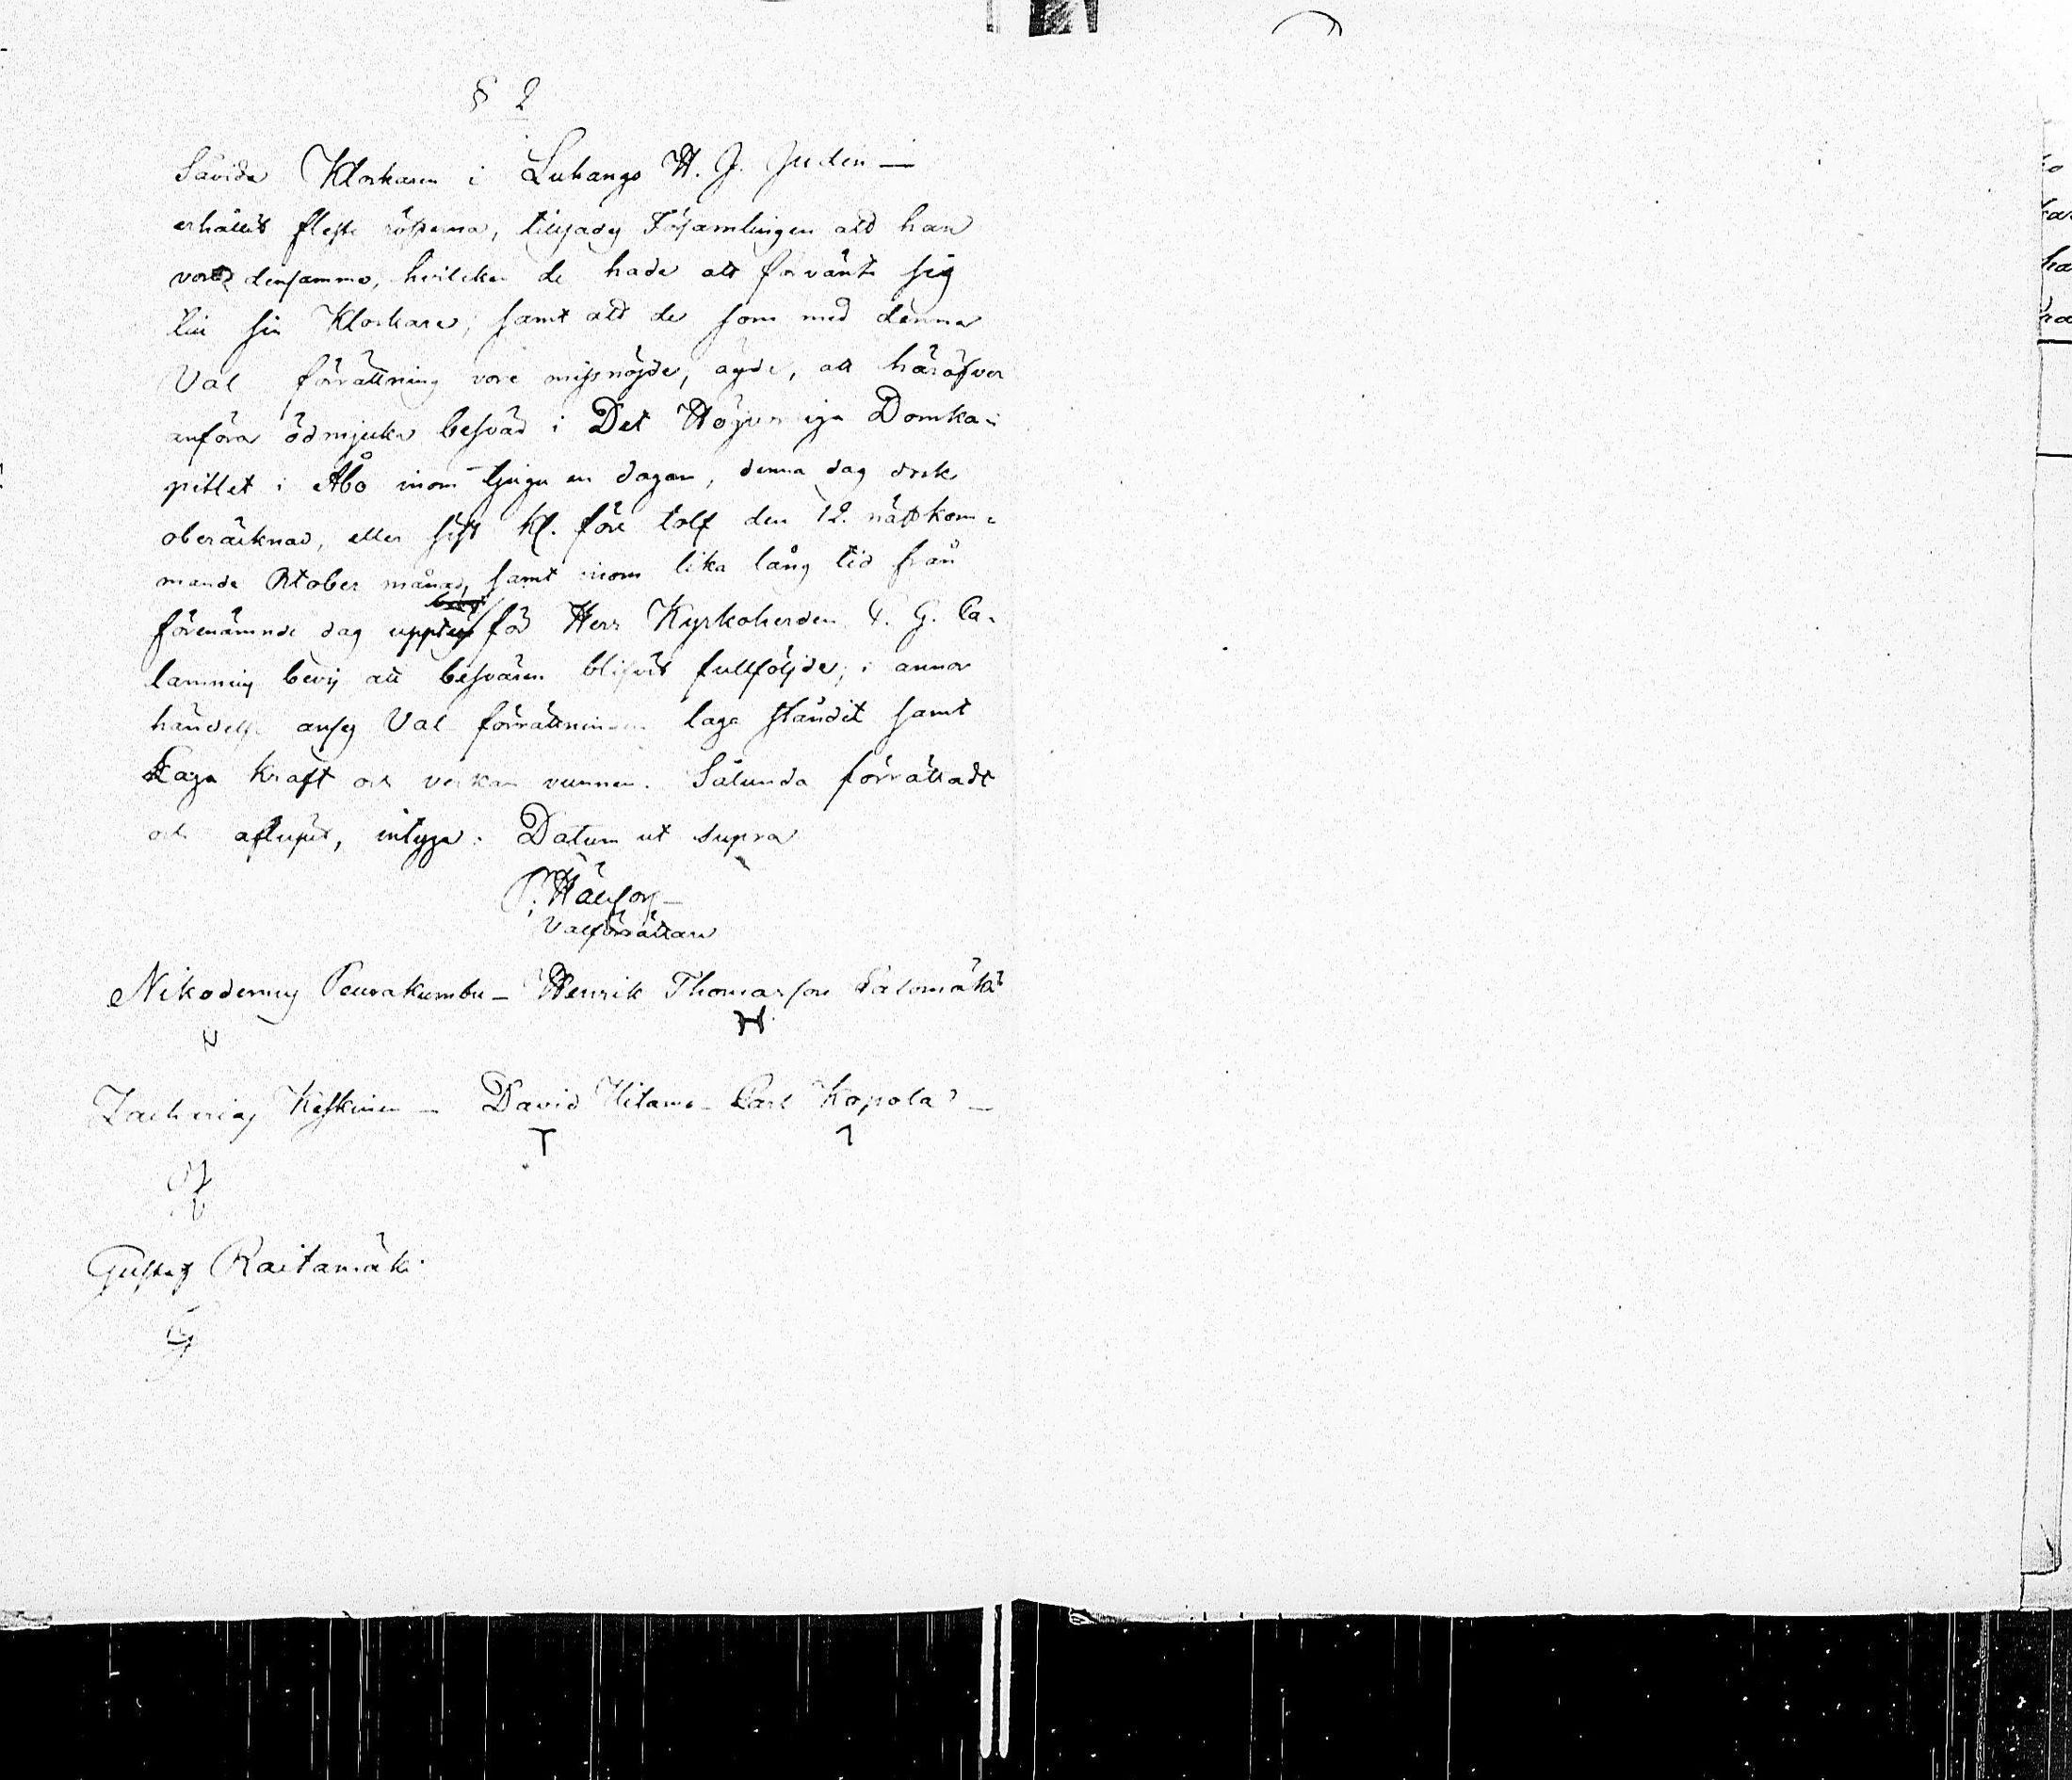 § 2
Såvida Klockaren i Luhango H. J. Judén —
erhållit fleste rösterna, tillsades Församlingen att han
vore densamme, hvilcken de hade att förvänta sig
till sin Klockare; samt att de som med denna
Val förrättning vore missnöjde, ägde, att häröfver
anföra ödmjuka besvär i Det Högvördiga Domka=
pitlet i Åbo inom tjugu en dagar, denna dag dock
oberäcknad, eller sist Kl. före tolf den 12. nästkom=
mande October månad, samt inom lika lång tid från
förenämnde dag uppvisa för Herr Kyrkoherden C. G. Ca=
lamnius bevis att besvären blifvit fullföljde; i annor
händelse anses Val förrättningen laga ståndit samt
Laga Kraft och verkan vunnen. Sålunda förrättadt
och aflupit, intygar. Datum ut supra
P. Hällfors
Valförrättare
Nikodemus Peurakumbu — Henrik Thomasson Salomäki
N H
Zacharias Keskinen — David Hitamo — Carl Kopola —
T 7
Gustaf Raitamäki
G